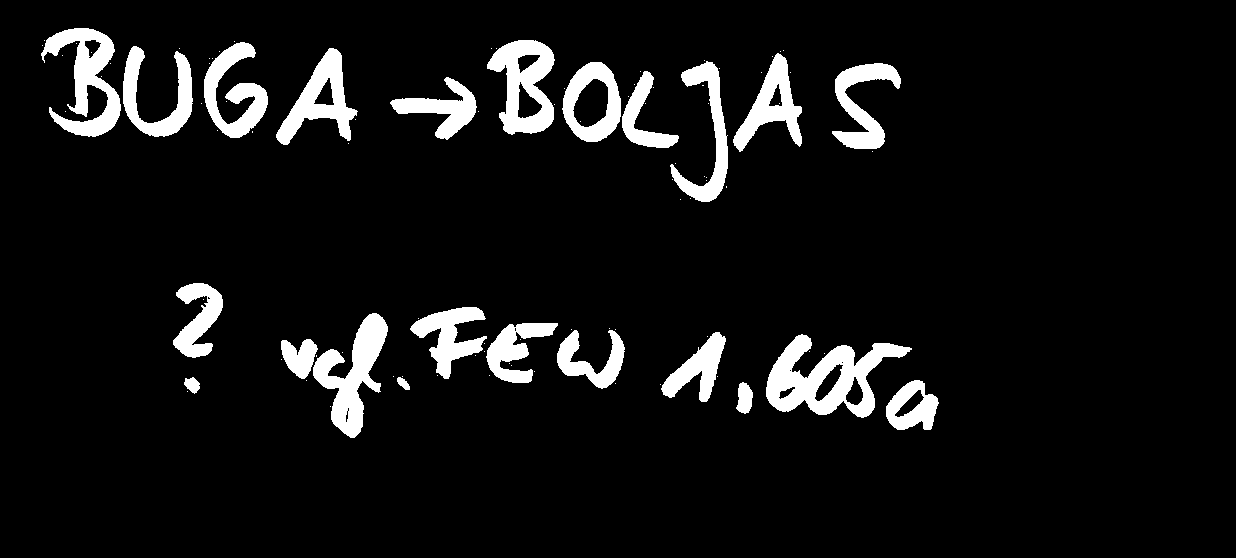 BUGA → BOLJAS
? vgl. FEW 1, 605a